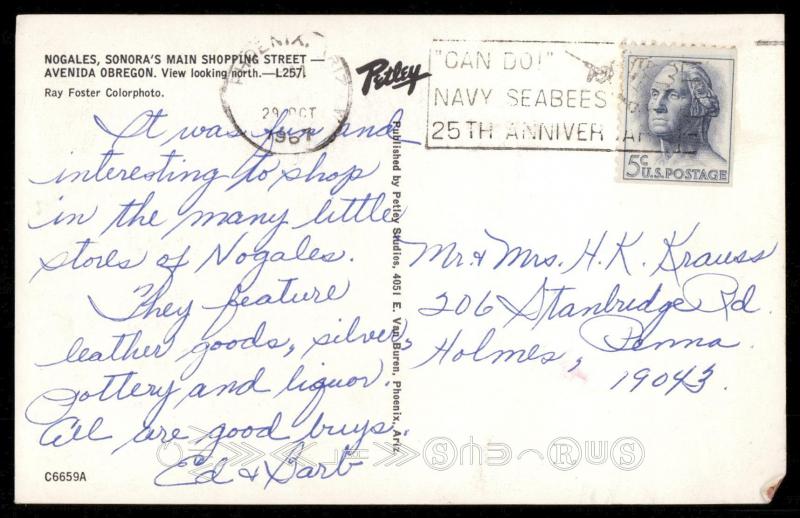 NOGALES, SONORA'S MAIN SHOPPING STREET —
AVENIDA OBREGON. View looking north.—L257.
Ray Foster Colorphoto.
It was fun and
interesting to shop
in the many little
stores of Nogales.
They feature
leather goods, silver,
pottery and liquor.
All are good buys.
Ed & Barb
C6659A
Petley
Published by Petley Studios, 4051 E. Van Buren, Phoenix, Ariz.
PHOENIX, ARIZ
29 OCT
1967
"CAN DO!"
NAVY SEABEES
25TH ANNIVERSARY
5c U.S. POSTAGE
Mr. & Mrs. H. K. Krauss
206 Stanbridge Rd.
Holmes, Penna.
19043